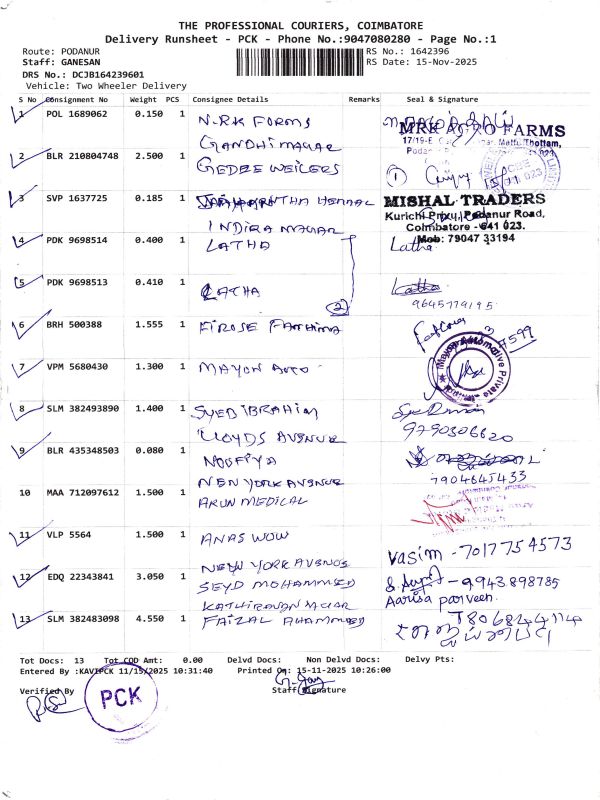 THE PROFESSIONAL COURIERS, COIMBATORE
Delivery Runsheet - PCK - Phone No.:9047080280 - Page No.:1
Route: PODANUR
RS No.: 1642396
Staff: GANESAN
RS Date: 15-Nov-2025
DRS No.: DCJB164239601
Vehicle: Two Wheeler Delivery
S No Consignment No Weight PCS Consignee Details Remarks Seal & Signature
1 POL 1689062 0.150 1 N.RK FORMS
MRK AGRO FARMS
GANDHI NAGAR
2 BLR 210804748 2.500 1 GEDEE WEILERS
3 SVP 1637725 0.185 1
MISHAL TRADERS
Kurichi Pirivu, Podanur Road,
Coimbatore - 641 023.
Mob: 79047 33194
INDIRA NAGAR
4 PDK 9698514 0.400 1 LATHA Latha
5 PDK 9698513 0.410 1 LATHA Latha
(2) 9645779195
6 BRH 500388 1.555 1 FIROSE FATHIMA
7 VPM 5680430 1.300 1 MAYON AUTO
8 SLM 382493890 1.400 1 SYED IBRAHIM
9790306620
LLOYDS AVENUE
9 BLR 435348503 0.080 1 NOUFIYA
7904645433
NEW YORK AVENUE
10 MAA 712097612 1.500 1 ARUN MEDICAL
11 VLP 5564 1.500 1 ANAS WOW
Vasim - 7017754573
NEW YORK AVENUE
12 EDQ 22343841 3.050 1 SEYD MOHAMMED
- 9943898785
Aarisa parveen
KATHIRAVAN NAGAR
13 SLM 382483098 4.550 1 FAIZAL AHAMMED
Tot Docs: 13 Tot COD Amt: 0.00 Delvd Docs: Non Delvd Docs: Delvy Pts:
Entered By :KAVIPCK 11/15/2025 10:31:40 Printed On: 15-11-2025 10:26:00
Verified By
PCK
Staff Signature